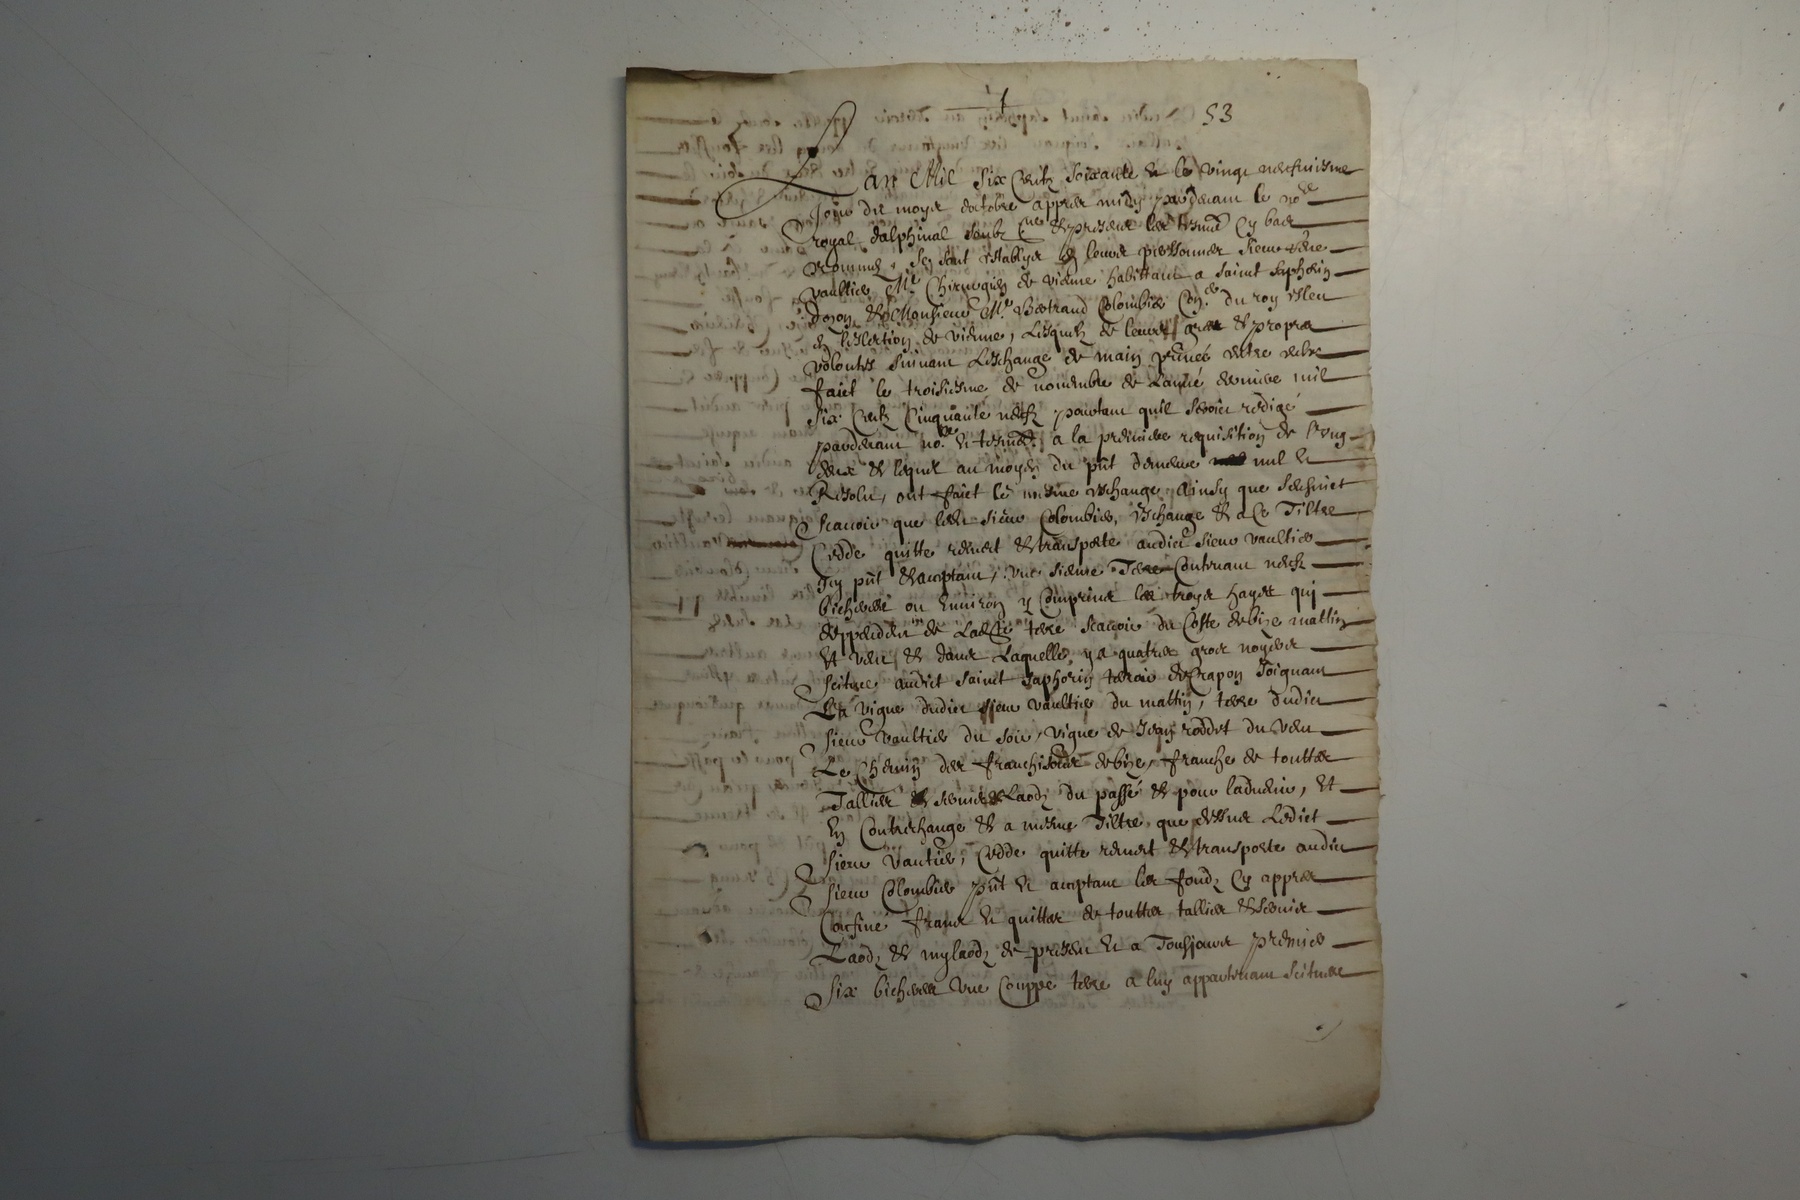 53
Lan Mil six Centz soixante et le vingt neufviesme
jour du moys doctobre appres midy pardevant le no.re
royal dalphinal soubz.ne et presens les tesmz cy bas
nommez, se sont establys en leurs personnes sieur
Vaultier Me Chirurgien de vienne habittant a saint saphorin
dozon, et Monsieur Me Bertrand Colombier Con.er du roy esleu
en leslection de vienne, Lesquelz de leurs gres et propres
volontés suivant Leschange de main privée
faict le troisiesme de novembre de Lannée derniere mil
six Centz Cinquante neufz portant quil seroit redigé
pardevant no.re et tesmz, a la premiere requisition de lung
deux et lequel au moyen du pnt demeure nul et
Resolu, ont faict le mesme eschange Ainsy que senssuict
scavoir que led. sieur Colombier, Eschange et a Ce Tiltre
Cedde quitte remet et transporte audict sieur vaultier
icy pnt et acceptant, une sienne Terre Contenant neufz
bicherées ou Environ y Comprins les troys hayes qui
deppendent de Ladicte terre scavoir du Coste de bize mattin
et vent, et dans Laquelle, y a quatres gros noyers
scituee audict saint saphorin terroir de Crapon Joignant
La vigne dudict sieur vaultier du mattin, terre dudict
sieur Vaultier du soir, vigne de Jean roddet du vent
Le Chemin des franchisses de bize, franche de touttes
Tallies et servis et Laodz du passé et pour ladvenir, Et
En Contreschange et a mesme Tiltre que dessus Ledict
sieur Vautier, Cedde quitte remet et transporte audict
sieur Colombier pnt et acceptant les fondz Cy appres
Confiné francs et quittes de touttes tallies et servis
Laodz et mylaodz de present et a Tousjours premier
six bicherées une Couppe terre a luy appartenant scituees